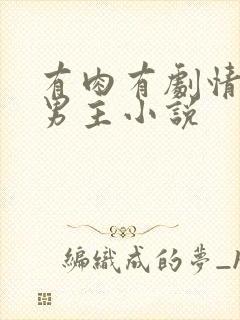 有肉有劇情
男主小說
編織成的夢_